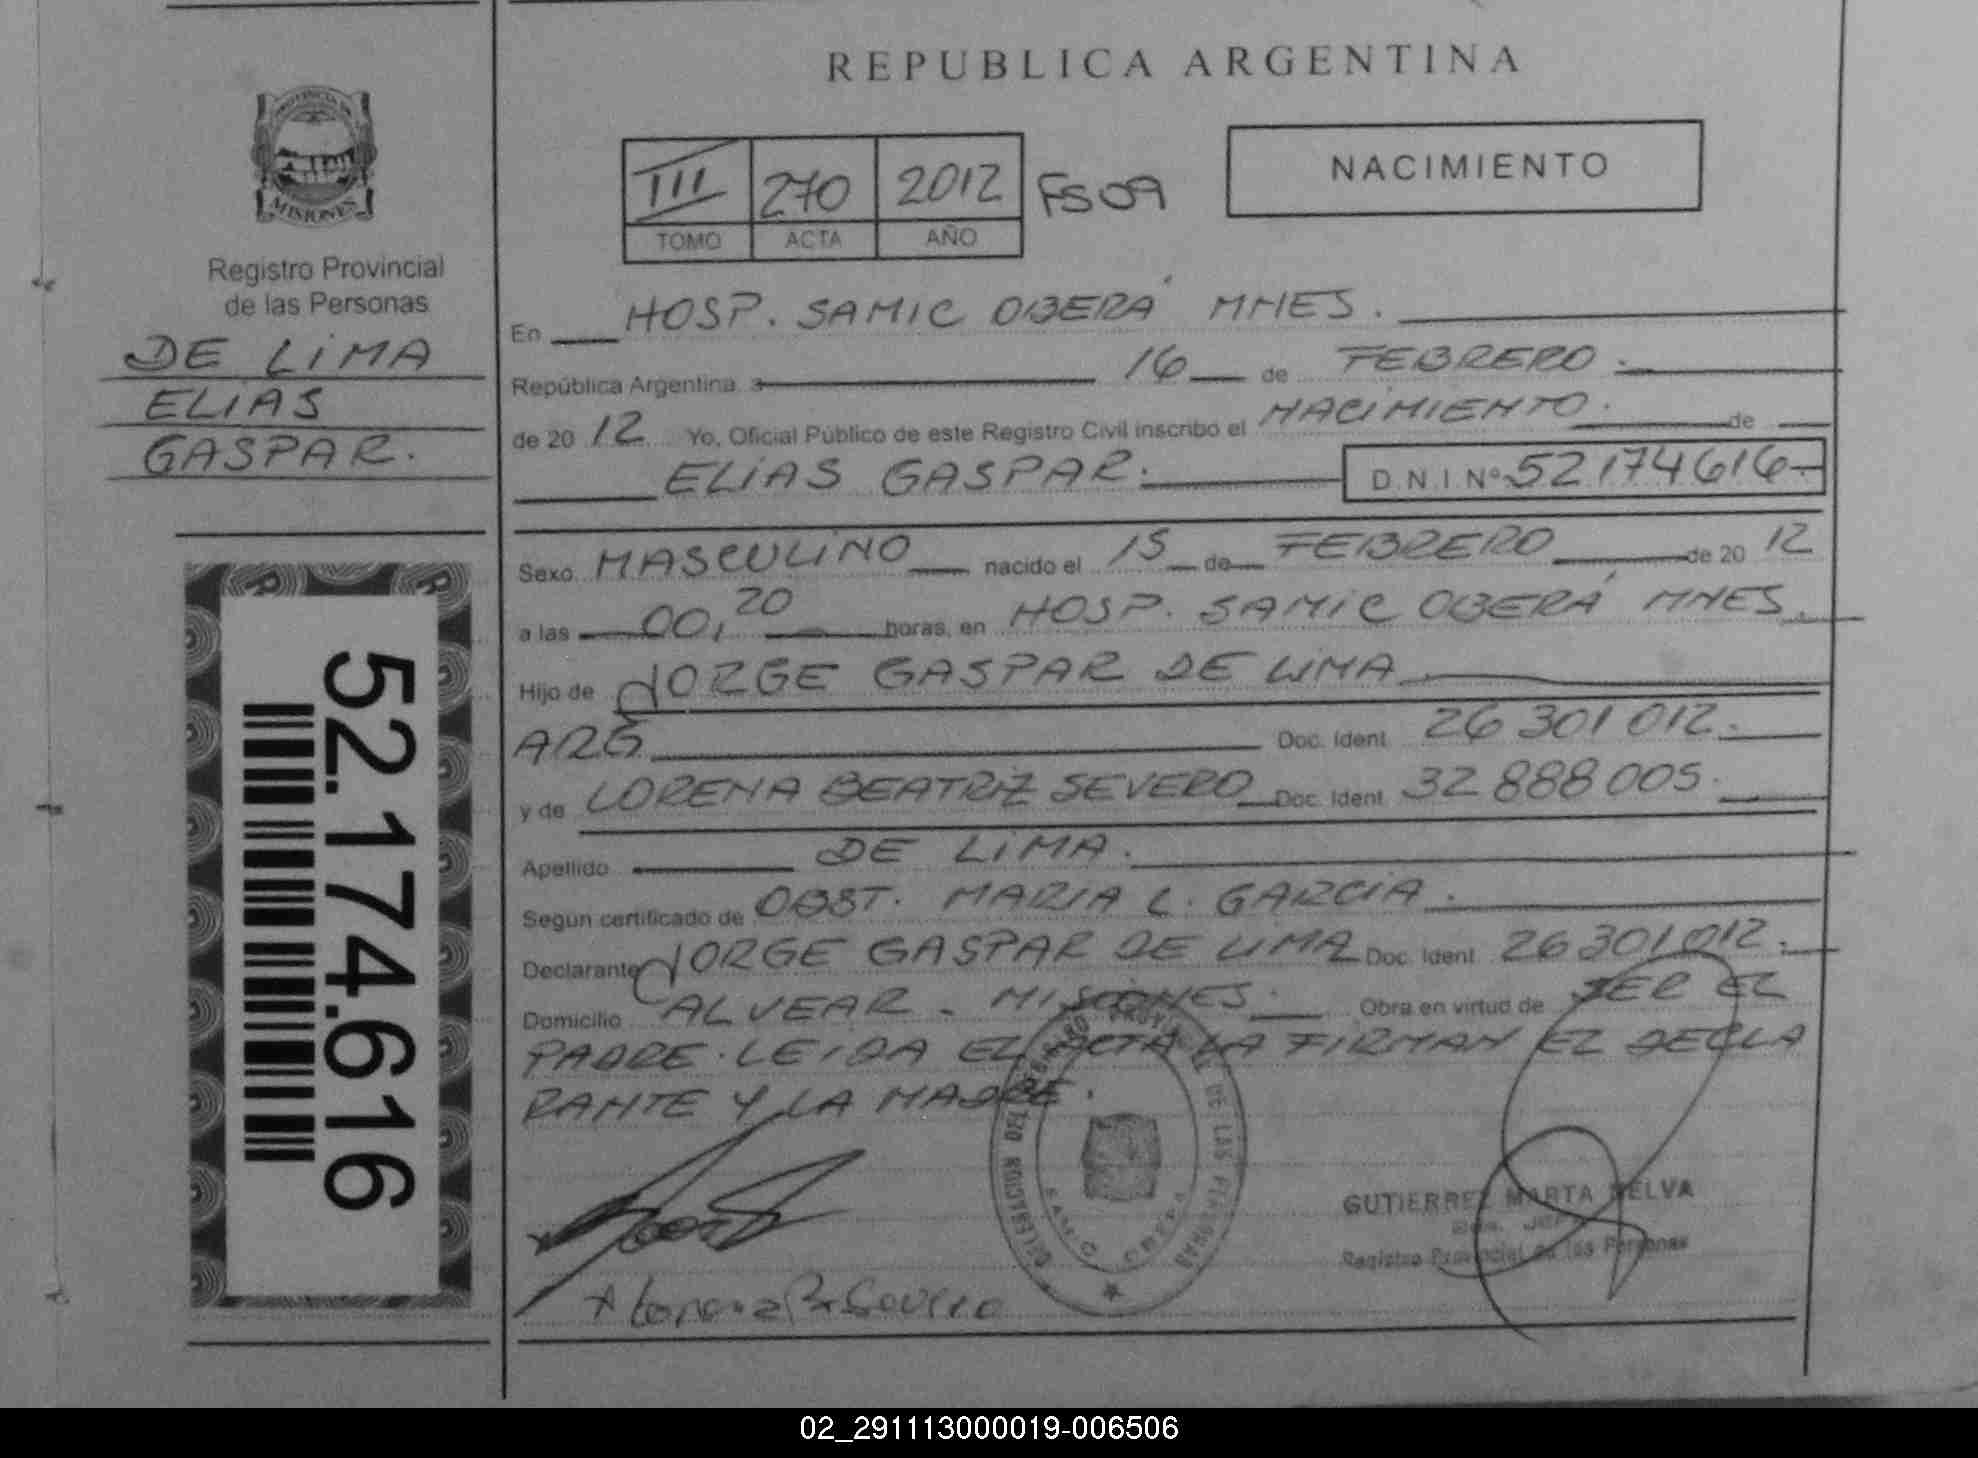 REPUBLICA ARGENTINA
PROVINCIA DE
MISIONES
Registro Provincial
de las Personas
DE LIMA
ELIAS
GASPAR.
III 270 2012 FS09
TOMO ACTA AÑO
NACIMIENTO
En HOSP. SAMIC OBERÁ MNES.
República Argentina a 16 de FEBRERO.
de 20 12 Yo, Oficial Público de este Registro Civil inscribo el NACIMIENTO. de
ELIAS GASPAR. D.N.I Nº 52174616-
Sexo MASCULINO nacido el 15 de FEBRERO de 20 12
a las 00,20 horas, en HOSP. SAMIC OBERÁ MNES.
Hijo de JORGE GASPAR DE LIMA
ARG Doc. Ident. 26 301 012.
y de LORENA BEATRIZ SEVERO Doc. Ident. 32 888 005.
Apellido DE LIMA.
Segun certificado de OBST. MARIA L. GARCIA.
Declarante JORGE GASPAR DE LIMA Doc. Ident. 26 301 012.
Domicilio ALVEAR - MISIONES. Obra en virtud de SER EL
PADRE. LEIDA EL ACTA LA FIRMAN EL DECLA
RANTE Y LA MADRE.
DELEGACION DEL REGISTRO PROVINCIAL DE LAS PERSONAS
SAMIC OBERA
GUTIERREZ MARTA NELVA
Registro Provincial de las Personas
Lorena B. Severo
52.174.616
02_291113000019-006506